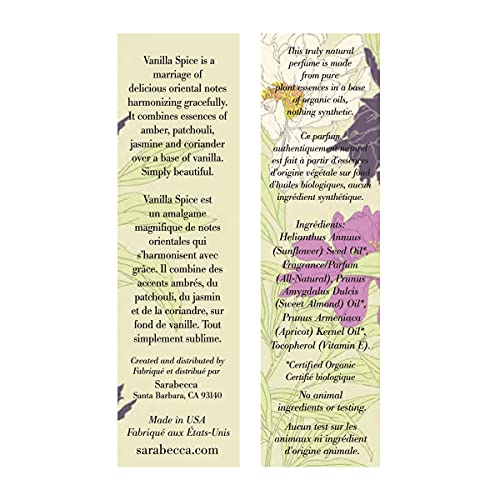 Vanilla Spice is a
marriage of
delicious oriental notes
harmonizing gracefully.
It combines essences of
amber, patchouli,
jasmine and coriander
over a base of vanilla.
Simply beautiful.
Vanilla Spice est
un amalgame
magnifique de notes
orientales qui
s'harmonisent avec
grâce. Il combine des
accents ambrés, du
patchouli, du jasmin
et de la coriandre, sur
fond de vanille. Tout
simplement sublime.
Created and distributed by
Fabriqué et distribué par
Sarabecca
Santa Barbara, CA 93140
Made in USA
Fabriqué aux États-Unis
sarabecca.com
This truly natural
perfume is made
from pure
plant essences in a base
of organic oils,
nothing synthetic.
Ce parfum
authentiquement naturel
est fait à partir d'essences
d'origine végétale sur fond
d'huiles biologiques, aucun
ingrédient synthétique.
Ingrédients:
Helianthus Annuus
(Sunflower) Seed Oil*,
Fragrance/Parfum
(All-Natural), Prunus
Amygdalus Dulcis
(Sweet Almond) Oil*,
Prunus Armeniaca
(Apricot) Kernel Oil*,
Tocopherol (Vitamin E).
*Certified Organic
Certifié biologique
No animal
ingredients or testing.
Aucun test sur les
animaux ni ingrédient
d'origine animale.